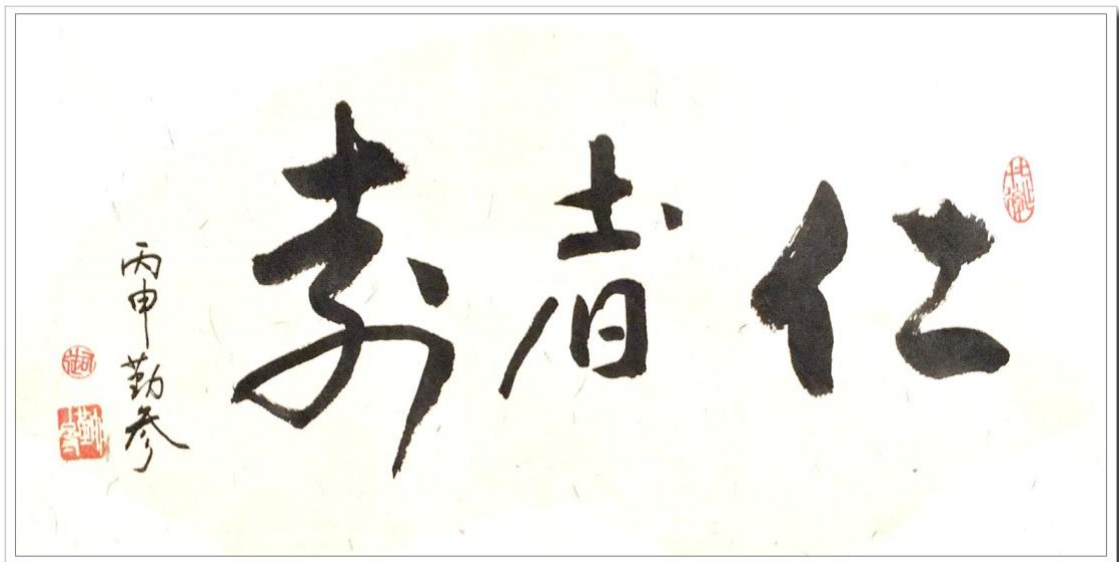 仁者寿
丙申勤参